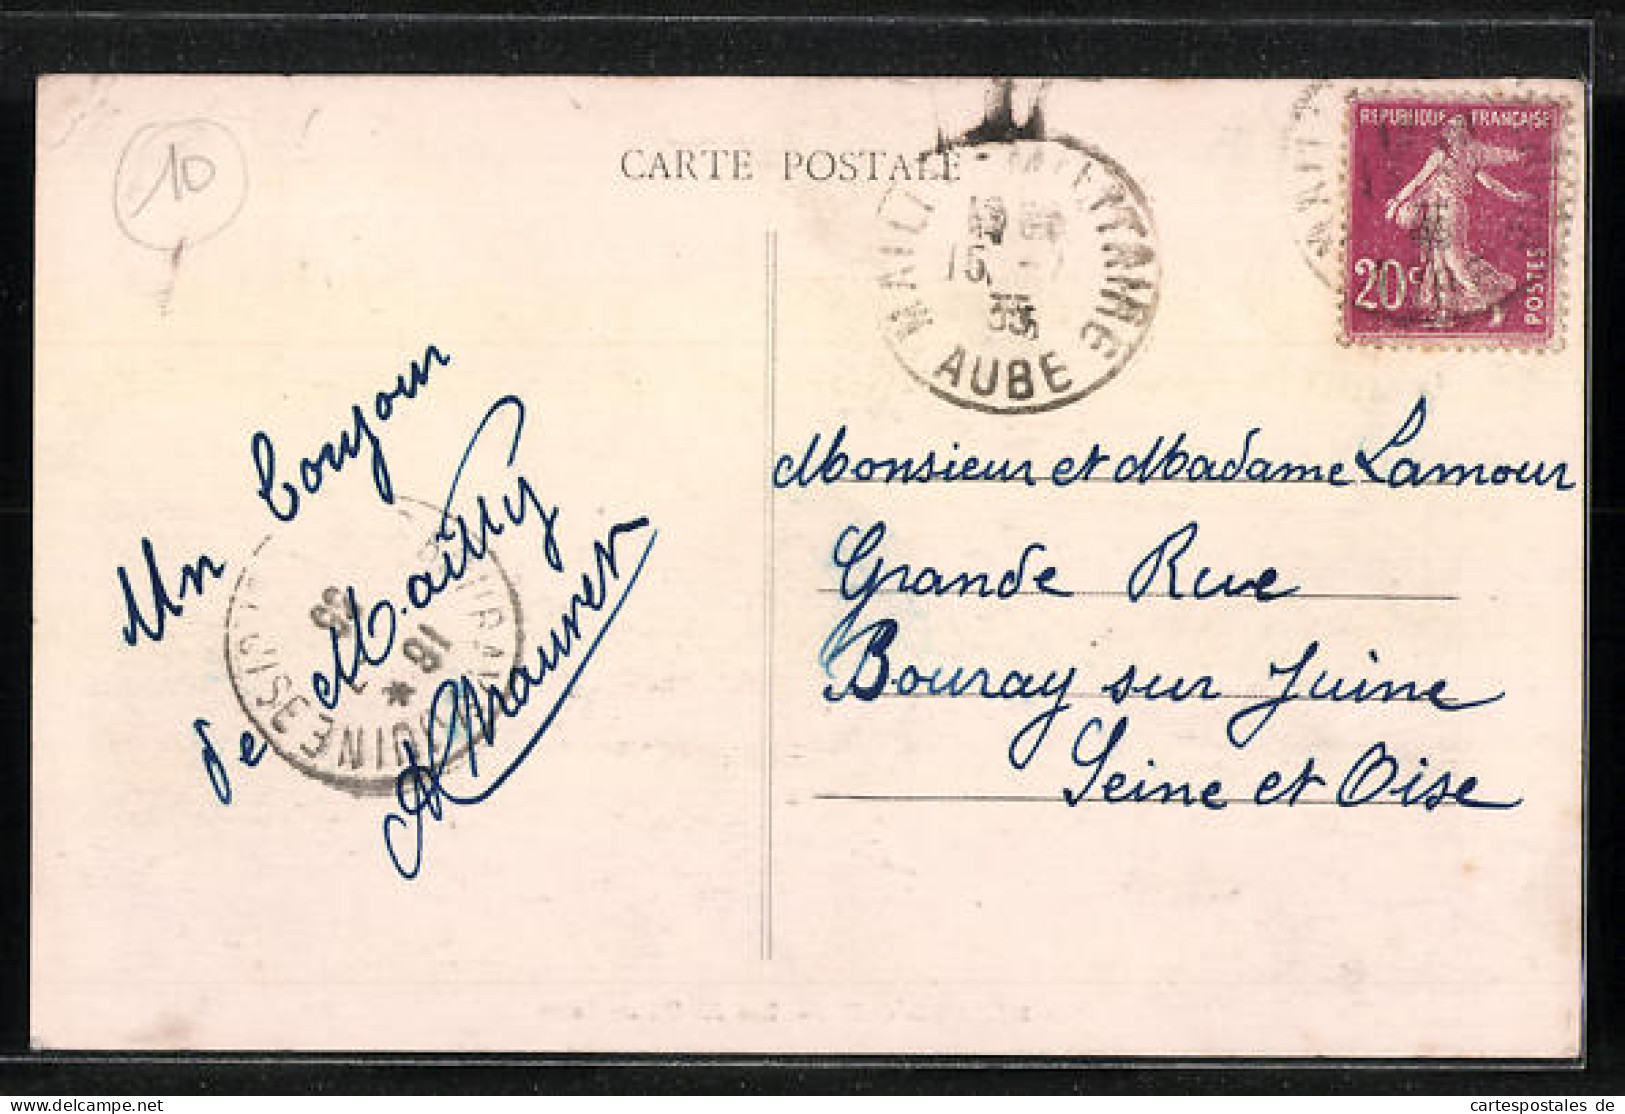 10
CARTE POSTALE
MAILLY
AUBE
REPUBLIQUE FRANÇAISE
20c
POSTES
Un bonjour
de Mailly
Monsieur et Madame Lamour
Grande Rue
Bouray sur Juine
Seine et Oise
18
cartespostales de